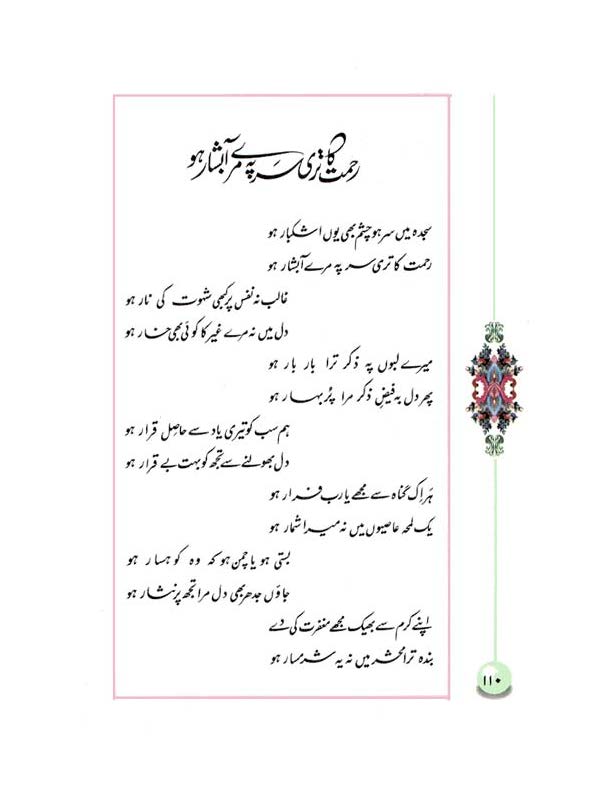 رحمت کا تری سر پہ مرے آبشار ہو
سجدہ میں سر ہو چشم بھی یوں اشکبار ہو
رحمت کا تری سر پہ مرے آبشار ہو
غالب نہ نفس پر کبھی شہوت کی نار ہو
دل میں نہ مرے غیر کا کوئی بھی خار ہو
میرے لبوں پہ ذکر ترا بار بار ہو
پھر دل بہ فیضِ ذکر مرا پُر بہار ہو
ہم سب کو تیری یاد سے حاصل قرار ہو
دل بھولنے سے تجھ کو بہت بے قرار ہو
ہر اِک گناہ سے مجھے یارب فرار ہو
یک لمحہ عاصیوں میں نہ میرا شمار ہو
بستی ہو یا چمن ہو کہ وہ کوہسار ہو
جاؤں جدھر بھی دل مرا تجھ پر نثار ہو
اپنے کرم سے بھیک مجھے مغفرت کی دے
بندہ ترا محشر میں نہ یہ شرمسار ہو
۱۱۰